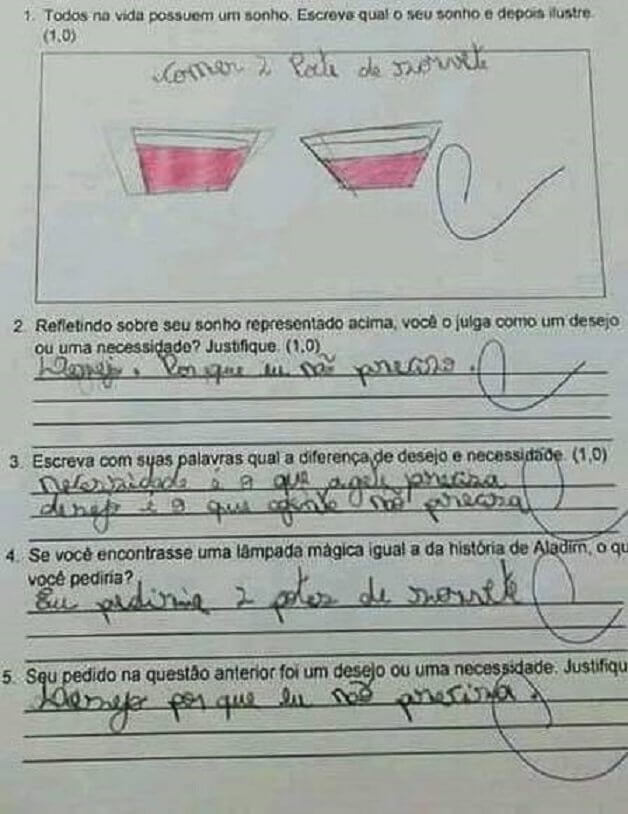 1. Todos na vida possuem um sonho. Escreva qual o seu sonho e depois ilustre.
(1,0)
Comer 2 Pote de sorvete
2. Refletindo sobre seu sonho representado acima, você o julga como um desejo
ou uma necessidade? Justifique. (1,0)
Desejo. Por que eu não preciso.
3. Escreva com suas palavras qual a diferença de desejo e necessidade. (1,0)
necessidade é o que agente precisa
desejo é o que agente não precisa
4. Se você encontrasse uma lâmpada mágica igual a da história de Aladim, o qu
você pediria?
Eu pediria 2 potes de sorvete
5. Seu pedido na questão anterior foi um desejo ou uma necessidade. Justifiqu
Desejo por que eu não